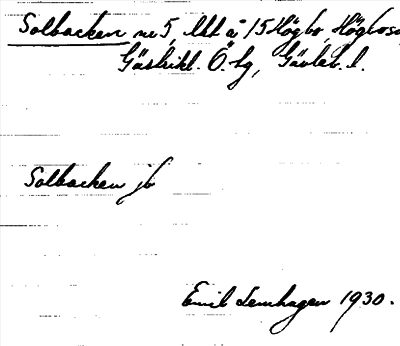 Solbacken nr 5, lht å 15 Högbo, Högbo sn
Gästrikl. Ö. tg, Gävleb. l.
Solbacken jb
Emil Lernhagen 1930.